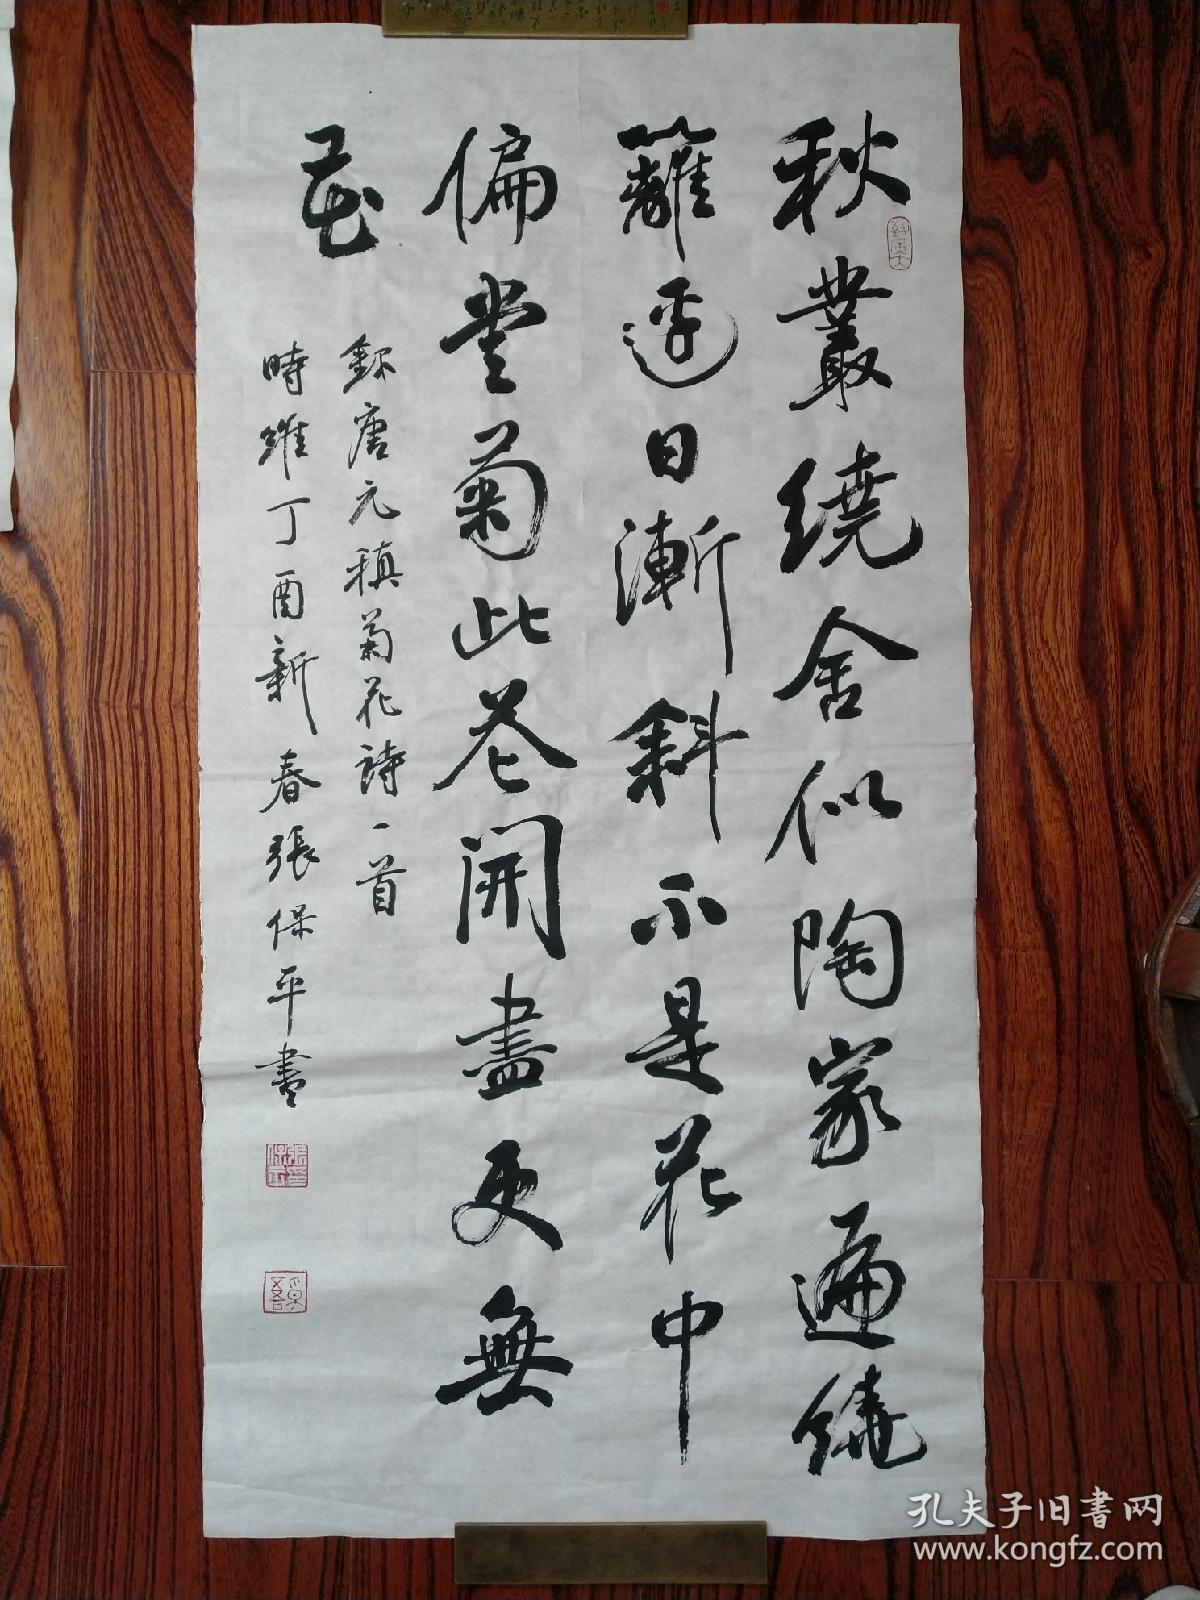 秋叢繞舍似陶家遍繞
籬邊日漸斜不是花中
偏愛菊此花開盡更無
花
錄唐元稹菊花詩一首
時維丁酉新春張保平書
孔夫子旧書网
www.kongfz.com